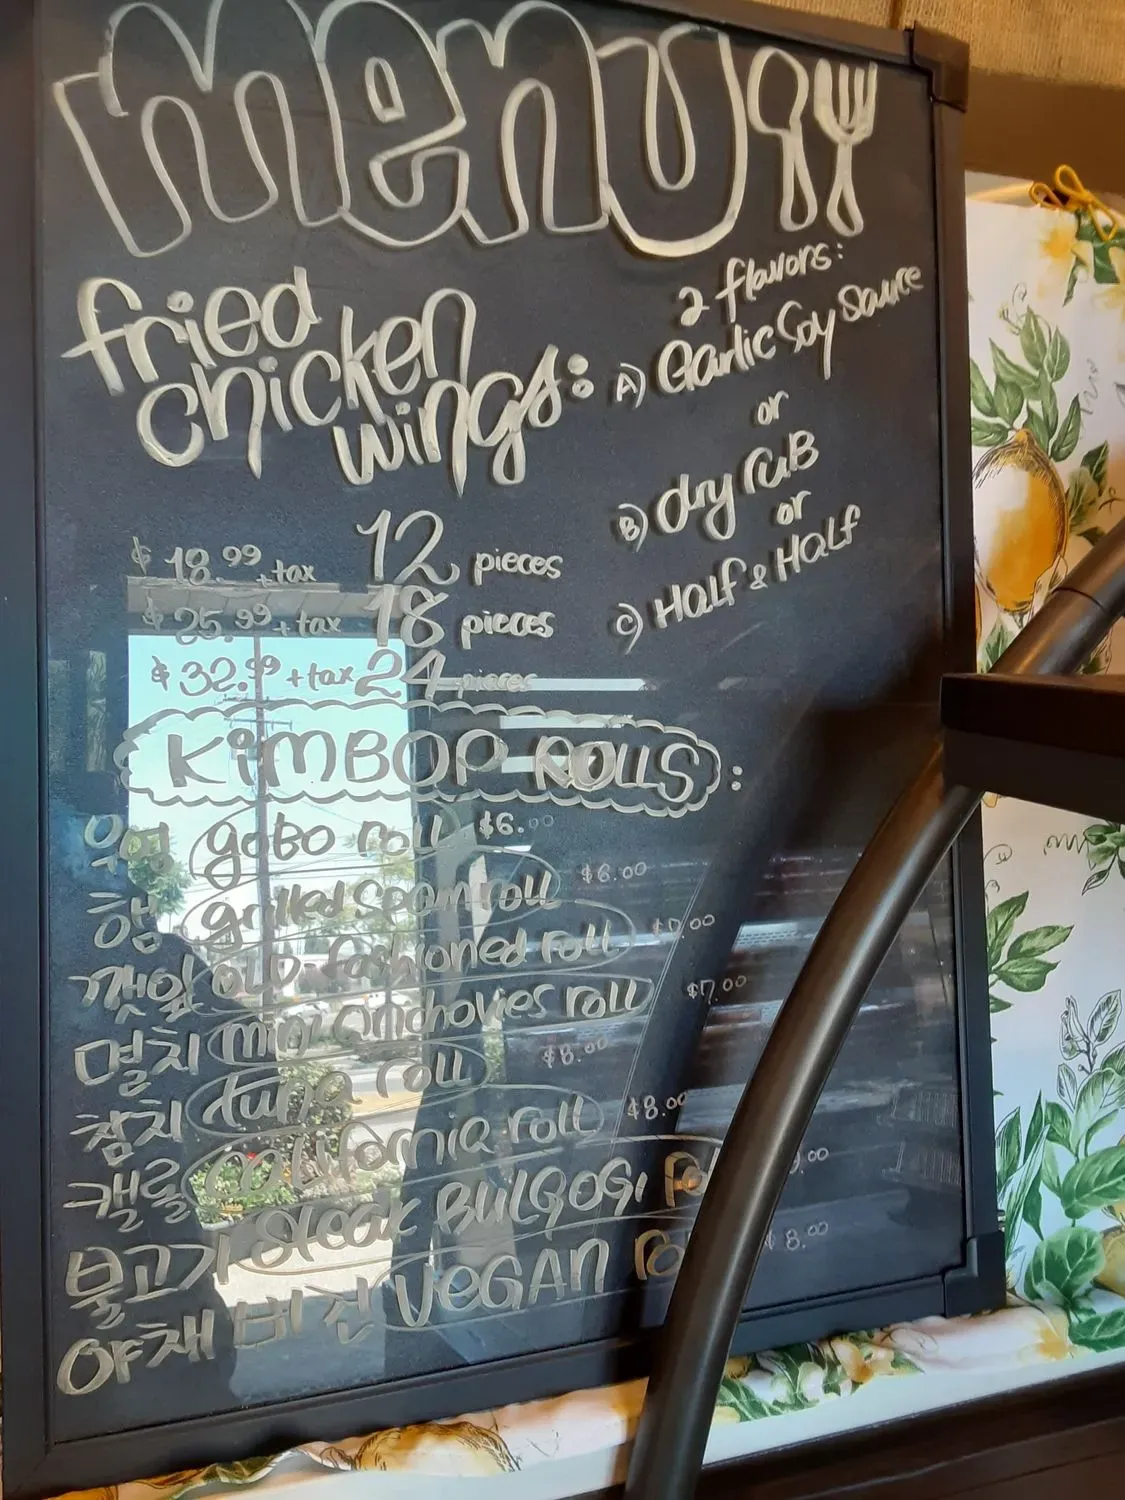 menu
fried
chicken
wings:
2 flavors:
A) Garlic Soy Sauce
or
B) dry ruB
or
C) Half & Half
$18.99 + tax 12 pieces
$25.99 + tax 18 pieces
$32.99 + tax 24 pieces
KiMBOP ROLLS:
우엉 gobo roll $6.00
햄 grilled Spam roll $6.00
깻잎 OLD fashioned roll $7.00
멸치 mini anchovies roll $7.00
참치 tuna roll $8.00
캘롤 California roll $8.00
불고기 Steak BULGOGi
야채 비건 VEGAN $8.00